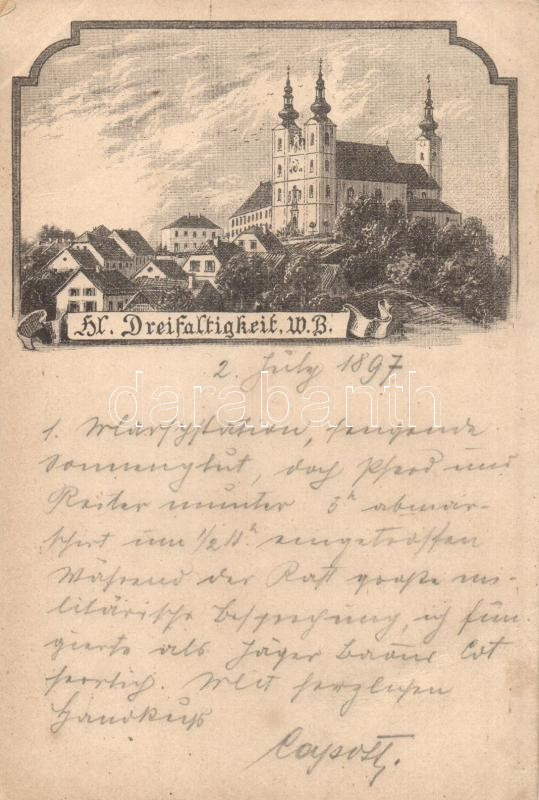 Hl. Dreifaltigkeit, W.B.
2. July 1897
darabanth
1. Marschstation, sengende
Sonnenglut, doch Pferd und
Reiter munter 3h abmar-
schirt um 1/2 11h eingetroffen
Während der Rast große mi-
litärische Besprechung, ich fun-
girte als Jäger Baons Cdt
herrlich. Mit herzlichem
Handkuß